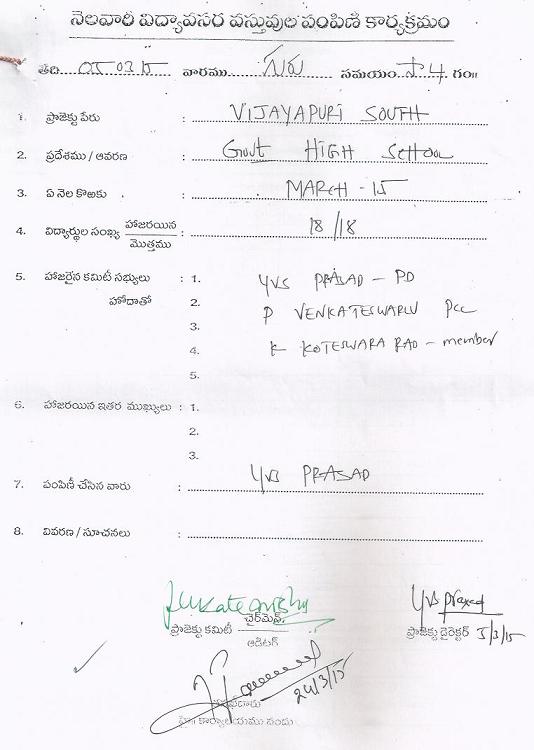 నెలవారీ విద్యావసర వస్తువుల పంపిణీ కార్యక్రమం
తేది 05 03 15 వారము గురు సమయం సా 4 గం॥
1. ప్రాజెక్టు పేరు : VIJAYAPURI SOUTH
2. ప్రదేశము / ఆవరణ : Govt HIGH SCHOOL
3. ఏ నెల కొఱకు : MARCH - 15
4. విద్యార్థుల సంఖ్య హాజరయిన / మొత్తము : 18/18
5. హాజరైన కమిటీ సభ్యులు : 1. YVS PRASAD - PD
హోదాతో 2. P VENKATESWARLU PCC
3.
4. K KOTESWARA RAO - member
5.
6. హాజరయిన ఇతర ముఖ్యులు : 1.
2.
3.
7. పంపిణీ చేసిన వారు : YVS PRASAD
8. వివరణ / సూచనలు :
చైర్‌మెన్ YVS Prasad
ప్రాజెక్టు కమిటీ ప్రాజెక్టు డైరెక్టర్ 5/3/15
ఆడిటర్
24/3/15
కార్యాలయము నందు